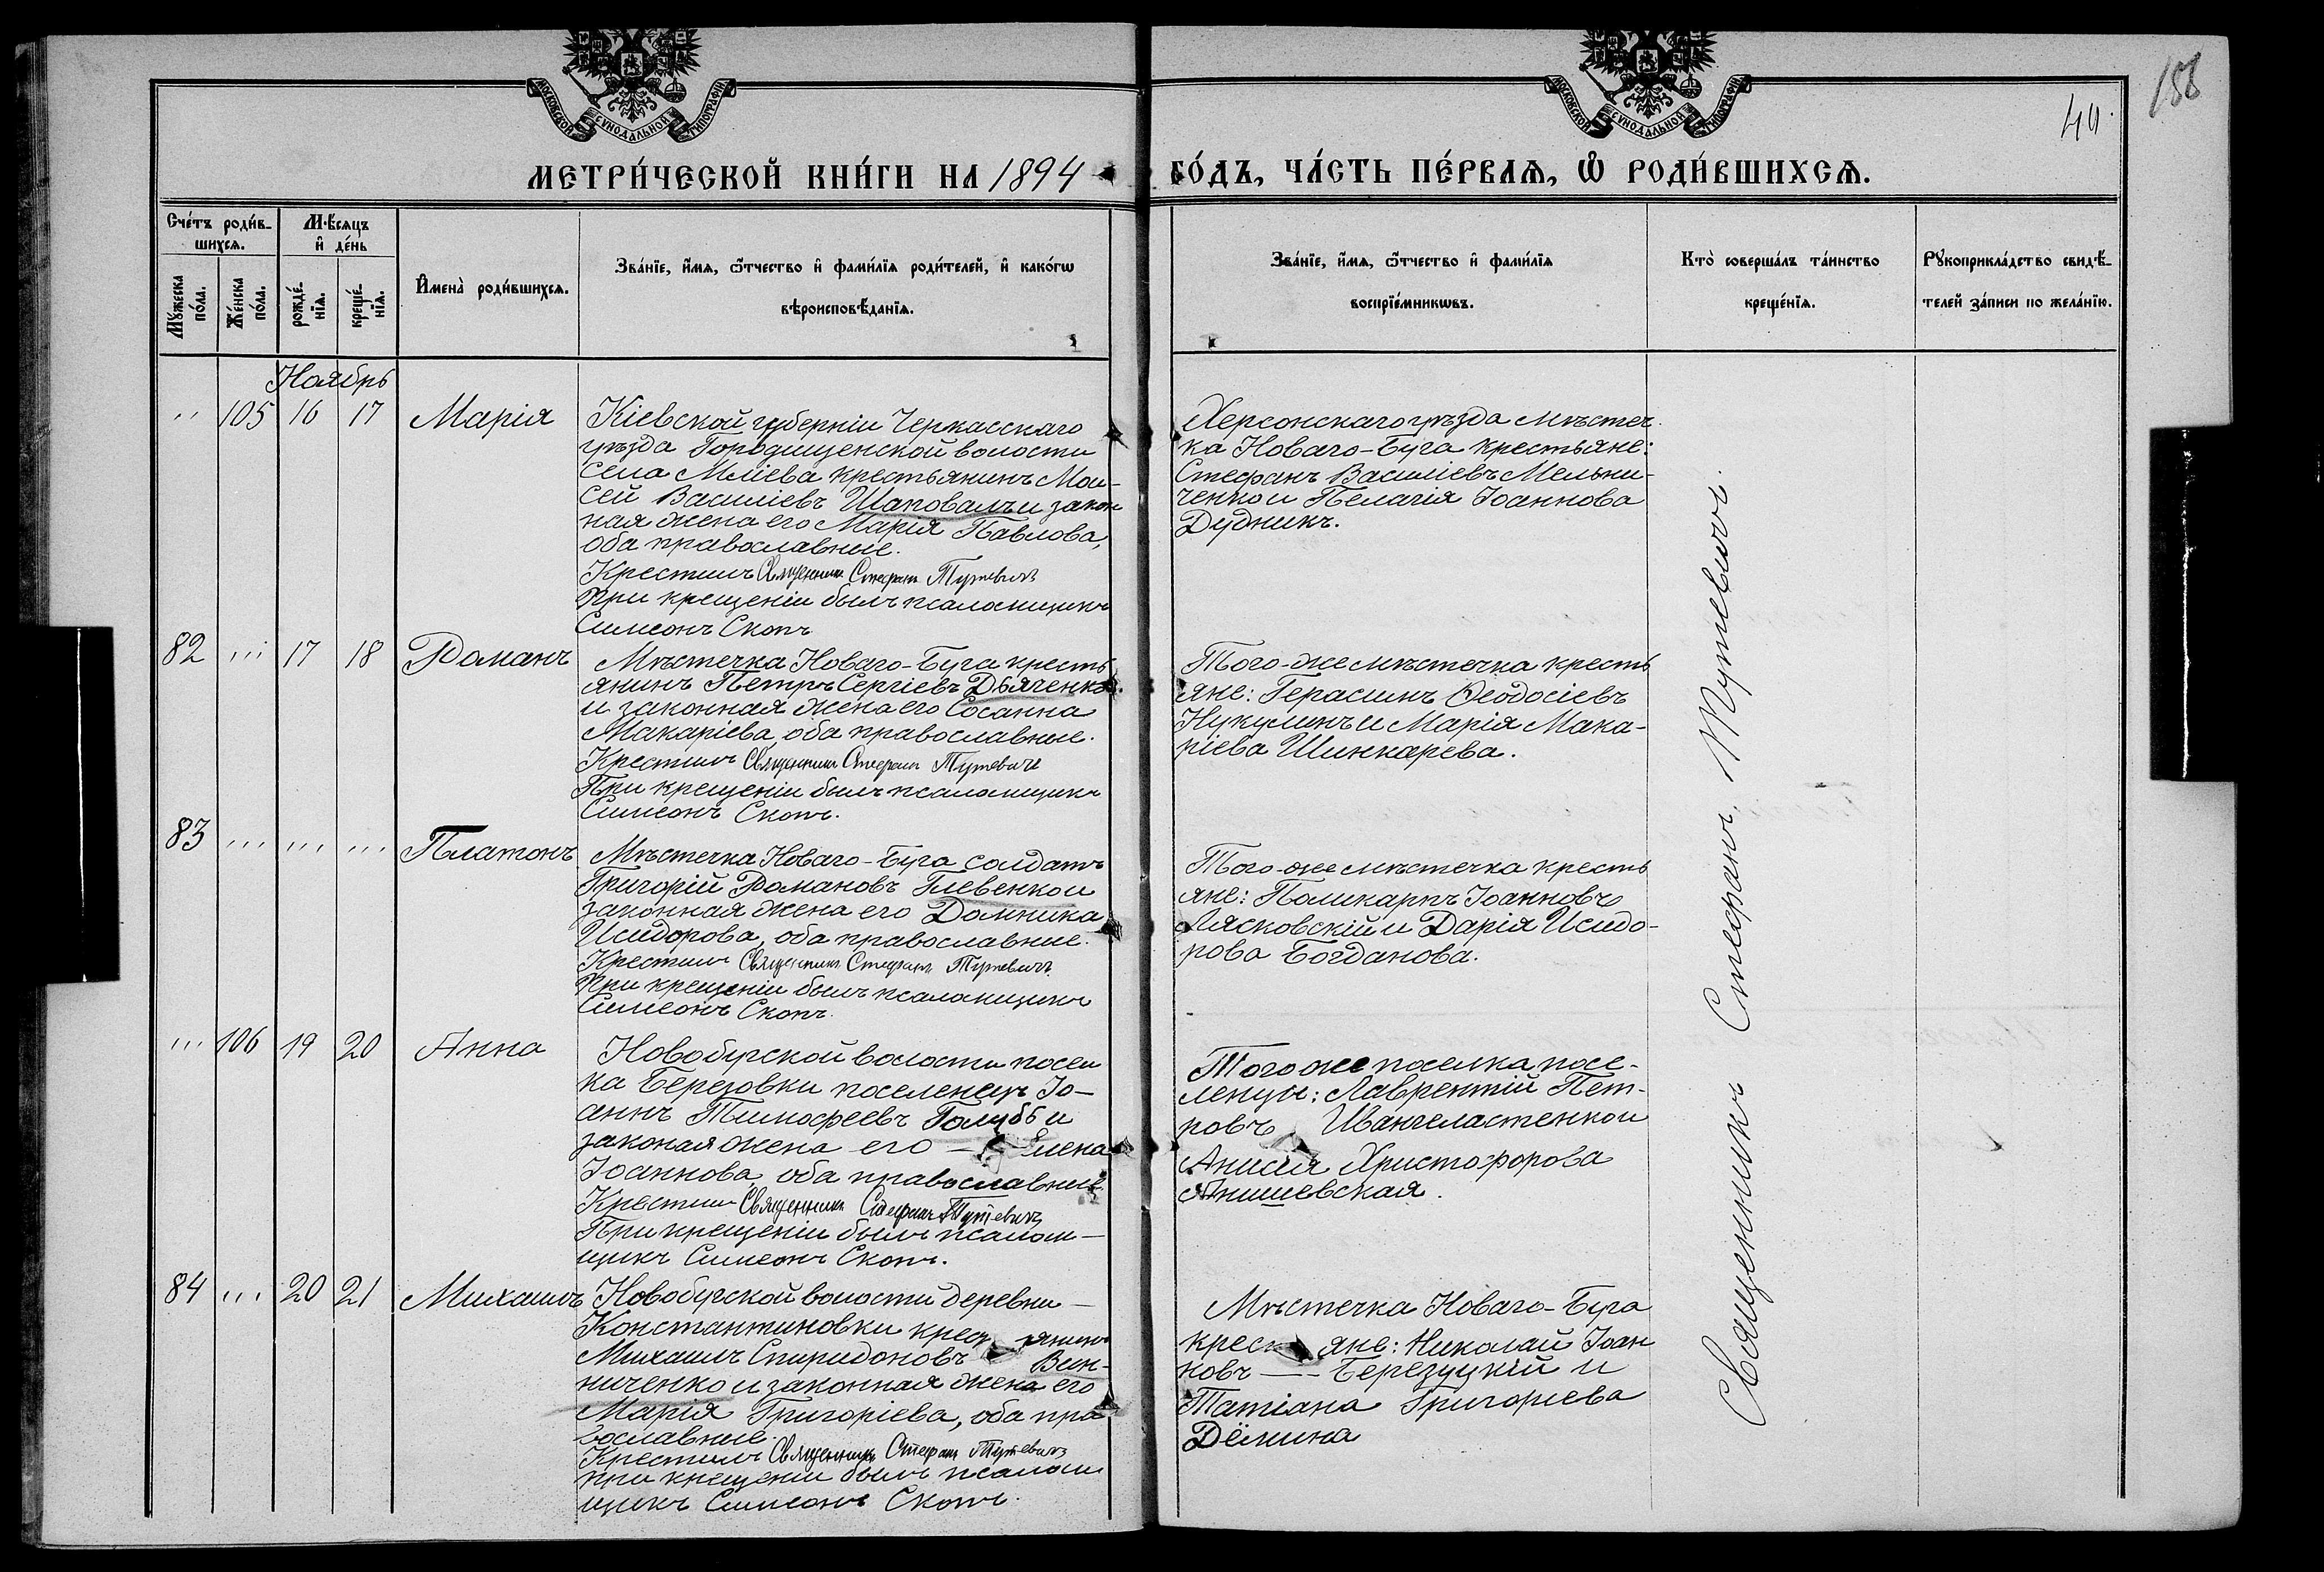 МОСКОВСКОЙ СѴНОДАЛЬНОЙ ТИПОГРАФІИ
МОСКОВСКОЙ СѴНОДАЛЬНОЙ ТИПОГРАФІИ
158
40.
МЕТРИ́ЧЕСКОЙ КНИ́ГИ НА 1894 ГО́ДЪ, ЧА́СТЬ ПЕ́РВАѦ, Ѡ҆ РОДИ́ВШИХСѦ.
Сче́тъ роди́в-
шихсѧ.
Мꙋ́жеска по́ла.
Же́нска по́ла.
Мѣ́сѧцъ
и҆ де́нь
рожде́-нїѧ.
креще́-нїѧ.
И҆мена̀ роди́вшихсѧ.
Зва́нїе, и҆́мѧ, ѻ҆́тчество и҆ фами́лїѧ роди́телей, и҆ како́гѡ
вѣроисповѣ́данїѧ.
Зва́нїе, и҆́мѧ, ѻ҆́тчество и҆ фами́лїѧ
воспрїе́мникѡвъ.
Кто̀ соверша́лъ та́инство
креще́нїѧ.
Рꙋкоприкла́дство свидѣ́-
телей за́писи по жела́нїю.
Ноябрь
" 105 16 17 Марія
Кіевской губерніи Черкасскаго
уѣзда Городищенской волости
села Мліева крестьянинъ Мои-
сей Василіевъ Шаповалъ и закон
ная жена его Марія Павлова,
оба православные.
Крестилъ Священникъ Стефанъ Тутевичъ
При крещеніи былъ псаломщикъ
Симеонъ Скопъ
Херсонскаго уѣзда Мѣстеч
ка Новаго-Буга крестьяне:
Стефанъ Василіевъ Мельни-
ченко и Пелагія Іоаннова
Дудникъ.
82 ,,, 17 18 Романъ
Мѣстечка Новаго-Буга кресть
янинъ Петръ Сергіевъ Дьяченко
и законная жена его Сосанна
Макаріева, оба православные.
Крестилъ Священникъ Стефанъ Тутевичъ
При крещеніи былъ псаломщикъ
Симеонъ Скопъ.
Того-же мѣстечка кресть
яне: Герасимъ Ѳеодосіевъ
Нукулинъ и Марія Мака-
ріева Шинкарева.
83 ,,, ,,, ,,, Платонъ
Мѣстечка Новаго-Буга солдатъ
Григорій Романовъ Глевенко и
законная жена его Домника
Исидорова, оба православные.
Крестилъ Священникъ Стефанъ Тутевичъ
При крещеніи былъ псаломщикъ
Симеонъ Скопъ.
Того-же мѣстечка кресть
яне: Поликарпъ Іоанновъ
Лясковскій и Дарія Исидо-
рова Богданова.
,,, 106 19 20 Анна
Новобугской волости посел
ка Березовки поселенецъ Іо-
аннъ Тимофеевъ Голубъ и
законая жена его — Елена
Іоаннова, оба православные
Крестилъ Священникъ Стефанъ Тутевичъ
При крещеніи былъ псалом-
щикъ Симеонъ Скопъ.
Того же поселка посе-
ленцы: Лаврентій Пет-
ровъ
Анисія Христофорова
Янишевская.
84 ,,, 20 21 Михаилъ
Новобугской волости деревни —
Константиновки крес янинъ
Михаилъ Спиридоновъ Вин-
ниченко и законная жена его
Марія Григоріева, оба пра
вославные.
Крестилъ Священникъ Стефанъ Тутевичъ
При крещеніи былъ псалом
щикъ Симеонъ Скопъ.
Мѣстечка Новаго-Буга
крес яне: Николай Іоан
новъ — Березуцкій и
Татіана Григоріева
Дёмина
Священникъ Стефанъ Тутевичъ.